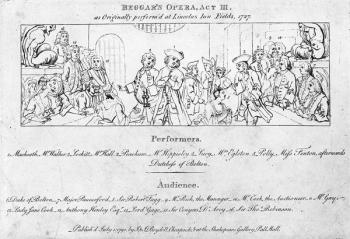 BEGGAR'S OPERA, ACT III.
as Originally perform'd at Lincolns Inn Fields, 1727.
Performers.
1. Macheath, Mr Walker. 2. Lockitt, Mr Hall. 3. Peachum, Mr Hippisley. 4. Lucy, Mrs Egleton. 5. Polly, Miss Fenton, afterwards
Dutchess of Bolton.
Audience.
6. Duke of Bolton. 7. Major Pauncefoord. 8. Sir Robert Fagg. 9. Mr Rich, the Manager. 10. Mr Cock, the Auctioneer. 11. Mr Gay.
12. Lady Jane Cook. 13. Anthony Henley Esqr. 14. Lord Gage. 15. Sir Conyers D'Arcy. 16. Sir Thos Robinson.
Publish'd July 1, 1790, by J. & J. Boydell, Cheapside, & at the Shakspeare Gallery, Pall Mall.